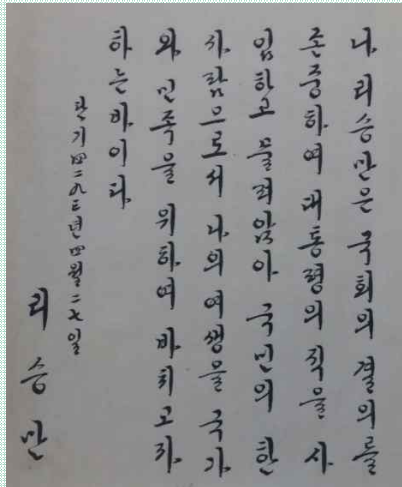 나, 리승만은 국회의 결의를
존중하여 대통령의 직을 사
임하고 물러앉아 국민의 한
사람으로서 나의 여생을 국가
와 민족을 위하여 바치고자
하는 바이다
단기 四二九三년 四월 二七일
리승만